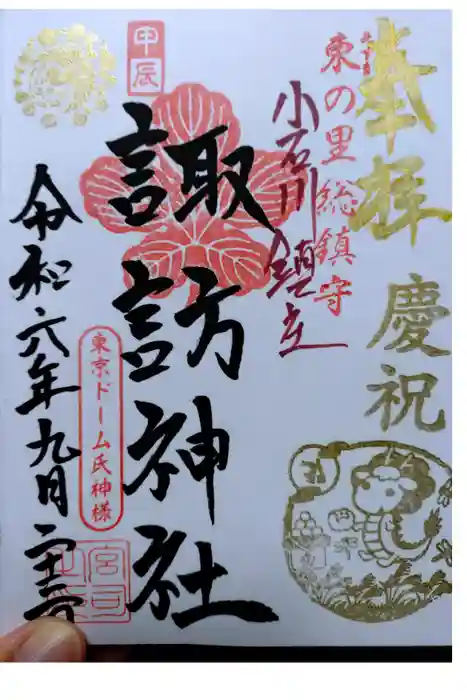 奉拝
慶祝
東の里総鎮守
小石川鎮立
甲辰
諏訪神社
東京ドーム氏神様
令和六年九月二十三日